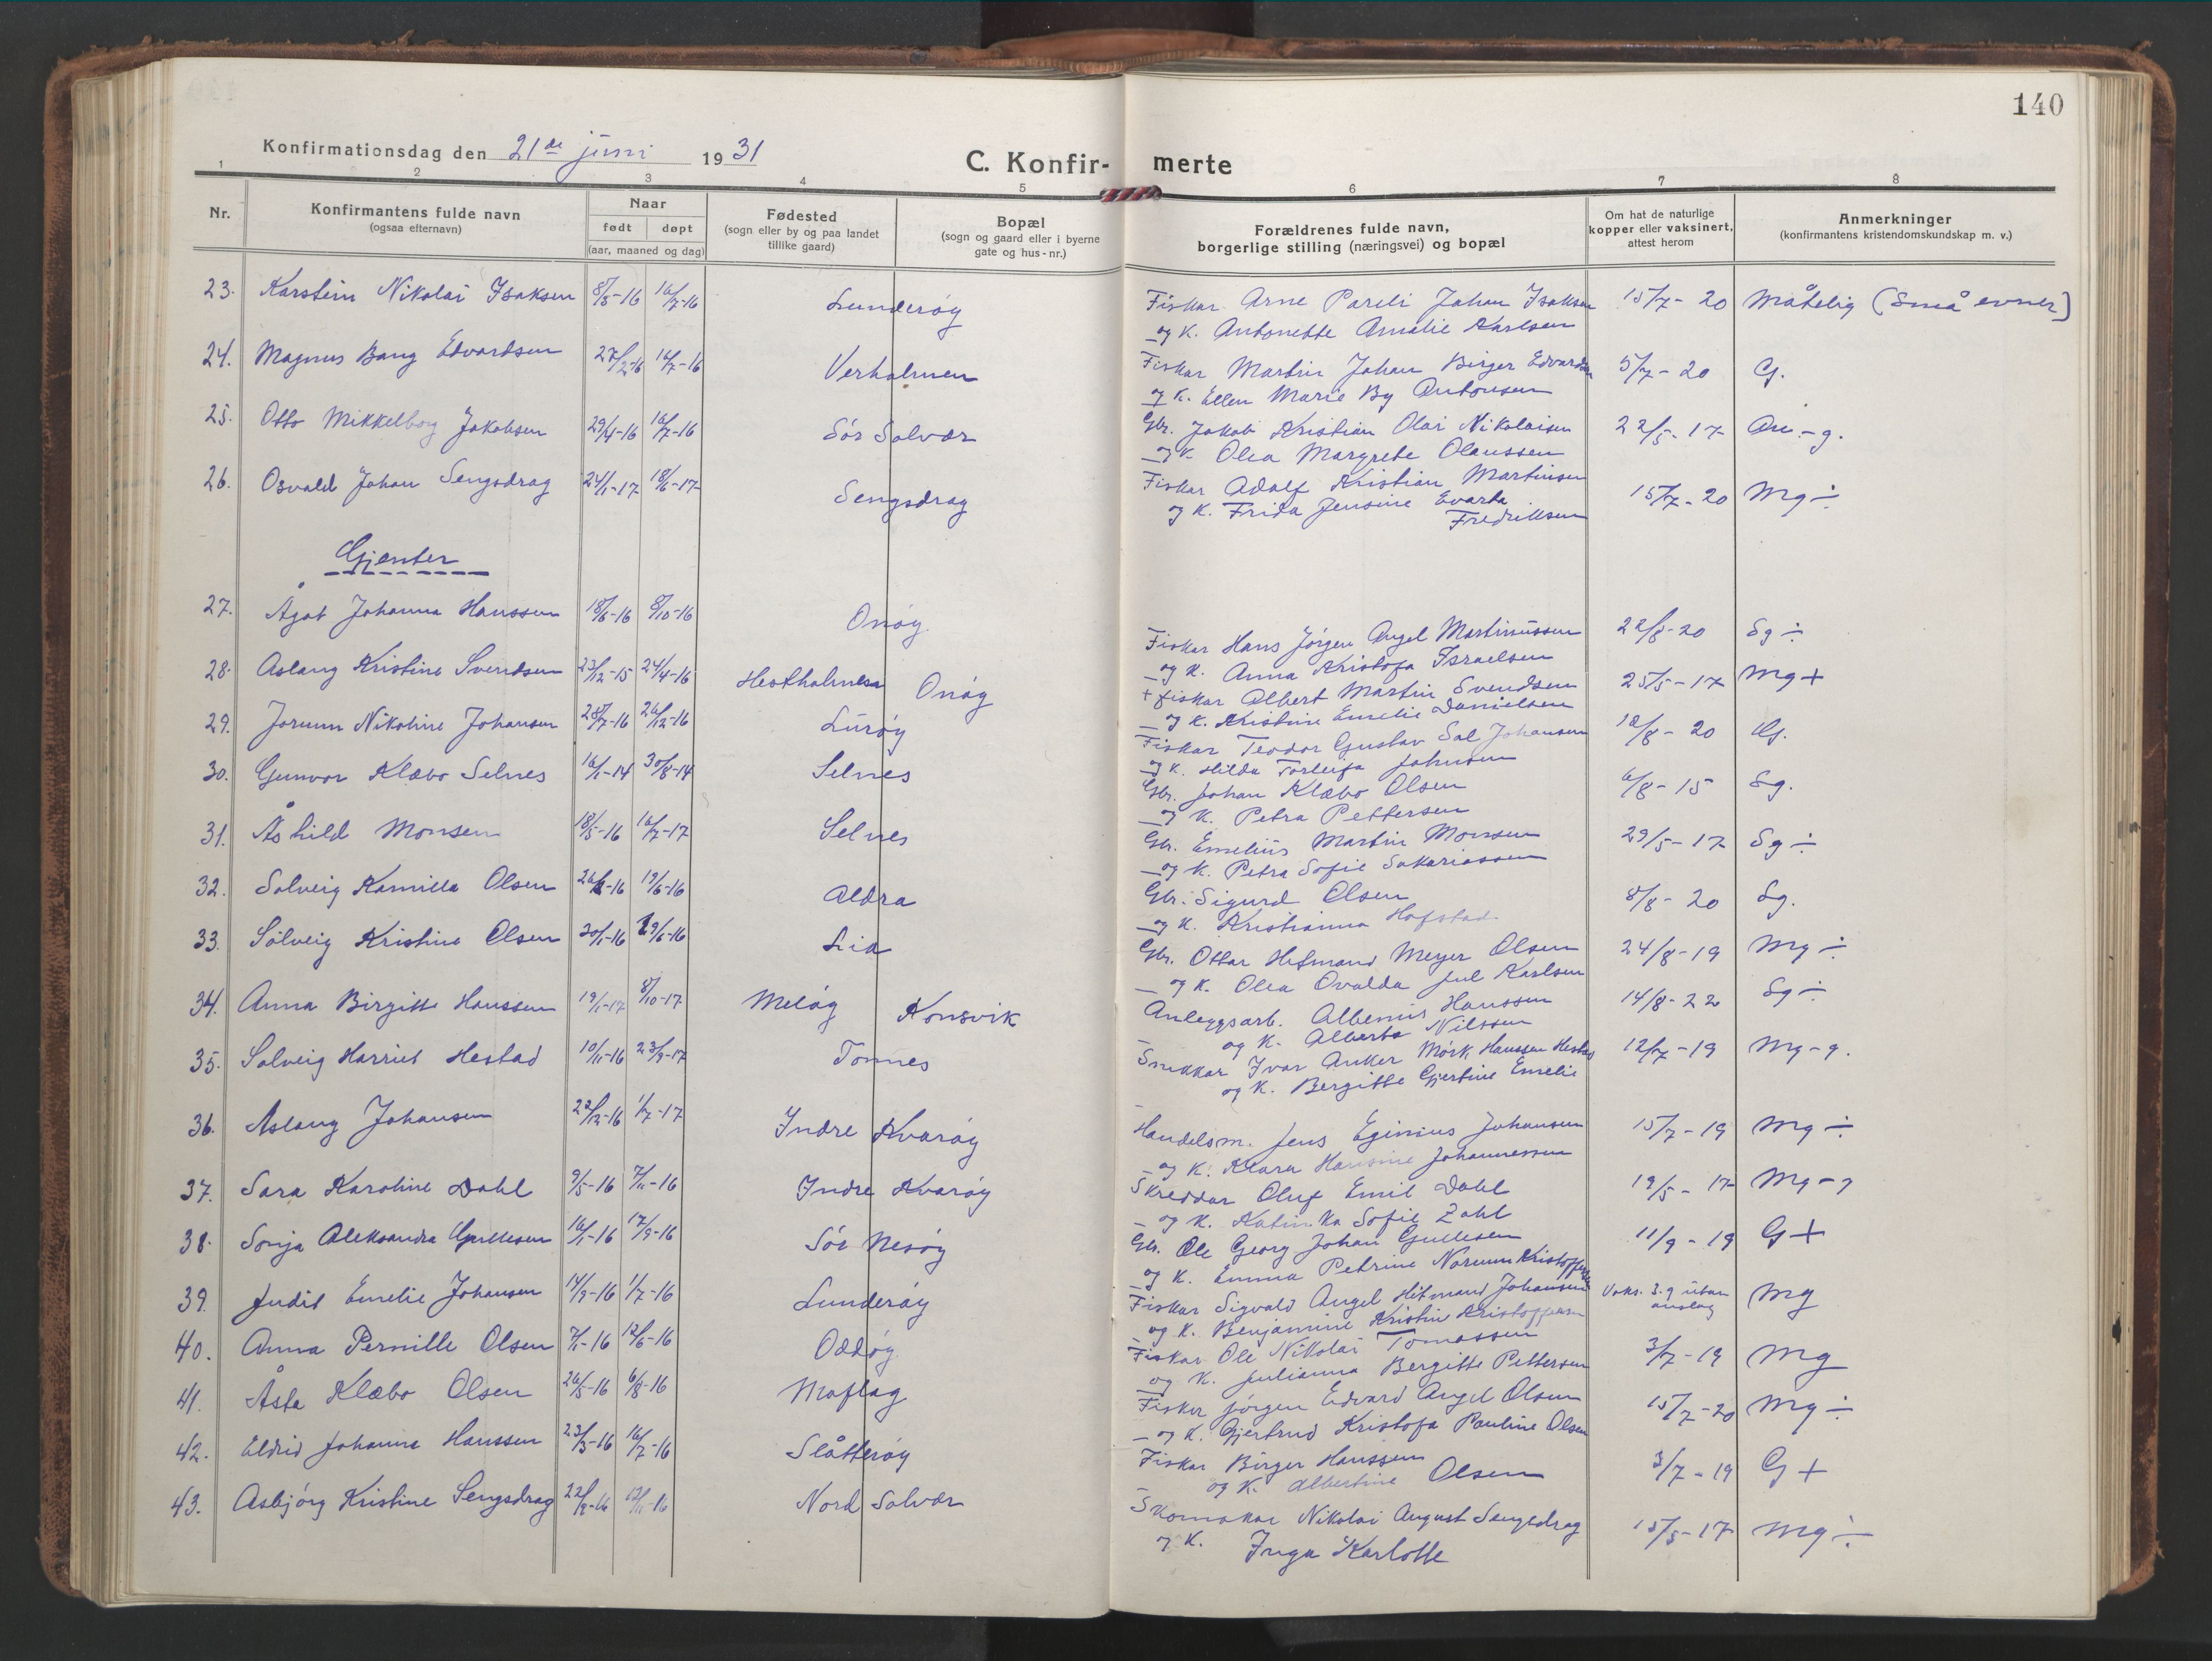 140
Konfirmationsdag den 21de juni 1931
C. Konfirmerte
1 2 3 4 5 6 7 8
Nr.
Konfirmantens fulde navn
(ogsaa efternavn)
Naar
født døpt
(aar, maaned og dag)
Fødested
(sogn eller by og paa landet
tillike gaard)
Bopæl
(sogn og gaard eller i byerne
gate og hus-nr.)
Forældrenes fulde navn,
borgerlige stilling (næringsvei) og bopæl
Om hat de naturlige
kopper eller vaksinert,
attest herom
Anmerkninger
(konfirmantens kristendomskundskap m. v.)
23. Karstein Nikolai Isaksen 8/5-16 16/7-16 Lunderøy Fiskar Arne Pareli Johan Isaksen 15/7-20 Måtelig (Små evner)
og K. Antonette Amalie Karlsen
24. Magnus Bang Edvardsen 27/2-16 16/7-16 Verholmen Fiskar Martin Johan Birger Edvardsen 5/7-20 G.
og K. Ellen Marie By Antonsen
25. Otto Mikkelborg Jakobsen 29/4-16 16/7-16 Sør Solvær Gbr. Jakob Kristian Olai Nikolaisen 22/5-17
og K. Olea Margrete Olaussen
26. Osvald Johan Sengsdrag 24/1-17 18/6-17 Sengsdrag Fiskar Adolf Kristian Martinsen 15/7-20 Mg ÷
og K. Frida Jensine Evarda
Fredriksen
Gjenter
27. Ågot Johanna Hanssen 18/6-16 8/10-16 Onøy Fiskar Hans Jørgen Angel Martinussen 22/8-20 Sg ÷
og K. Anna Kristofa Israelsen
28. Aslaug Kristine Svendsen 23/12-15 24/4-16 Hestholmen Onøy + fiskar Albert Martin Svendsen 25/5-17 Mg +
og K. Kristine Emelie Danielsen
29. Jorunn Nikoline Johansen 28/7-16 26/12-16 Lurøy Fiskar Teodor Gustav Sal Johansen 12/8-20 G.
og K. Hilda Torleifa Johnsen
30. Gunvor Klæbo Selnes 16/1-14 30/8-14 Selnes Gbr. Johan Klæbo Olsen 6/8-15 Sg.
og K. Petra Pettersen
31. Åshild Monsen 18/5-16 16/7-17 Selnes Gbr. Emelius Martin Monsen 29/5-17 Sg ÷
og K. Petra Sofie Sakariassen
32. Solveig Kamilla Olsen 19/6-16 Aldra Gbr. Sigurd Olsen 8/8-20 Sg.
og K. Kristianna Hofstad
33. Solveig Kristine Olsen 20/1-16 29/6-16 Lia Gbr. Ottar Hefmand Meyer Olsen 24/8-19 Mg ÷
og K. Olea Ovalda Jul Karlsen
34. Anna Birgitte Hanssen 19/1-17 8/10-17 Meløy Konsvik Anleggsarb. Albemis Hanssen 14/8-22 Sg ÷
og K. Alberta Nilssen
35. Solveig Harriet Hestad 10/11-16 23/9-17 Tonnes Snekkar Ivar Anker Mørk Hanssen Hestad 12/7-19 Mg-g.
og K. Bergitte Gjertine Emelie
36. Aslaug Johansen 22/12-16 1/7-17 Indre Kvarøy Handelsm. Jens Eginius Johansen 15/7-19 Mg ÷
og K. Klara Hansine Johannessen
37. Sara Karoline Dahl 9/5-16 7/11-16 Indre Kvarøy Skreddar Oluf Emil Dahl 19/5-17 Mg-g
og K. Katinka Sofie Zahl
38. Sonja Aleksandra Gullesen 16/1-16 17/9-16 Sør Nesøy Gbr. Ole Georg Johan Gullesen 11/9-19 G +
og K. Emma Petrine Norum Kristoffersen
39. Judit Emelie Johansen 14/3-16 1/7-16 Lunderøy Fiskar Sigvald Angel Hitmand Johansen Vaks. 3. g utan Mg
anslag
og K. Benjamine Kristine Kristoffersen
40. Anna Pernille Olsen 7/1-16 12/6-16 Oddøy Fiskar Ole Nikolai Tomassen 3/7-19 Mg
og K. Julianna Bergitte Pettersen
41. Åsta Klæbo Olsen 26/5-16 6/8-16 Moflag Fisker Jørgen Edvard Angel Olsen 15/7-20 Mg ÷
og K. Gjertrud Kristofa Pauline Olsen
42. Eldrid Johanna Hanssen 23/3-16 16/7-16 Slåtterøy Fiskar Birger Hanssen 3/7-19 G +
og K. Albertine Olsen
43. Asbjørg Kristine Sengsdrag 22/9-16 12/11-16 Nord Solvær Skomakar Nikolai August Sengsdrag 15/5-17 Mg ÷
og K. Inga Karlotte